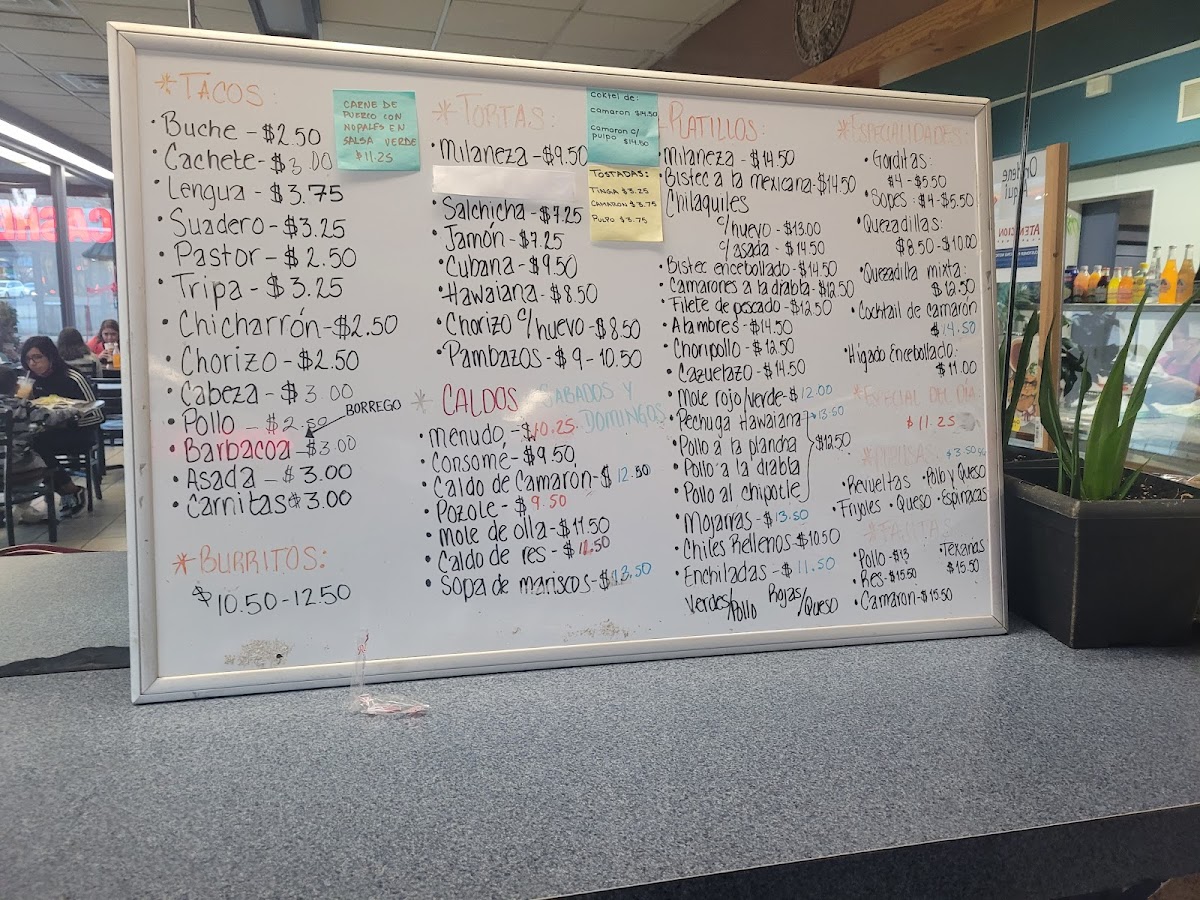 *TACOS:
• Buche - $2.50
• Cachete - $3.00
• Lengua - $3.75
• Suadero - $3.25
• Pastor - $2.50
• Tripa - $3.25
• Chicharrón - $2.50
• Chorizo - $2.50
• Cabeza - $3.00
• Pollo - $2.50
BORREGO
• Barbacoa - $3.00
• Asada - $3.00
• Carnitas $3.00
*BURRITOS:
$10.50-12.50
CARNE DE
PUERCO CON
NOPALES EN
SALSA VERDE
$11.25
*TORTAS:
• Milaneza - $9.50
• Salchicha - $7.25
• Jamón - $7.25
• Cubana - $9.50
• Hawaiana - $8.50
• Chorizo c/huevo - $8.50
• Pambazos - $9 - 10.50
* CALDOS SABADOS Y
DOMINGOS
• Menudo - $10.25
• Consome - $9.50
• Caldo de Camarón - $12.50
• Pozole - $9.50
• Mole de olla - $11.50
• Caldo de res - $11.50
• Sopa de mariscos - $13.50
COKTEL DE:
CAMARON $14.50
CAMARON C/
PULPO $14.50
TOSTADAS:
TINGA $3.25
CAMARON $3.75
PULPO $3.75
PLATILLOS:
Milaneza - $14.50
Bistec a la mexicana - $14.50
Chilaquiles
c/huevo - $13.00
c/asada - $14.50
• Bistec encebollado - $14.50
• Camarones a la diabla - $12.50
• Filete de pescado - $12.50
• Alambres - $14.50
• Choripollo - $12.50
• Cazuelazo - $14.50
• Mole rojo/verde - $12.00
• Pechuga Hawaiana 13.50
• Pollo a la plancha
• Pollo a la diabla $12.50
• Pollo al chipotle
• Mojarras - $13.50
• Chiles Rellenos - $10.50
• Enchiladas - $11.50
Verdes/Pollo Rojas/Queso
*ESPECIALIDADES:
• Gorditas:
$4 - $5.50
• Sopes - $4 - $5.50
• Quezadillas:
$8.50 - $10.00
• Quezadilla mixta:
$12.50
• Cocktail de camarón
$14.50
• Higado Encebollado:
$11.00
*ESPECIAL DEL DÍA
$11.25
$3.50
• Revueltas • Pollo y Queso
• Frijoles • Queso • Espinacas
*FAJITAS
• Pollo - $13 • Texanas
• Res - $15.50 $15.50
• Camaron - $15.50
Aqui